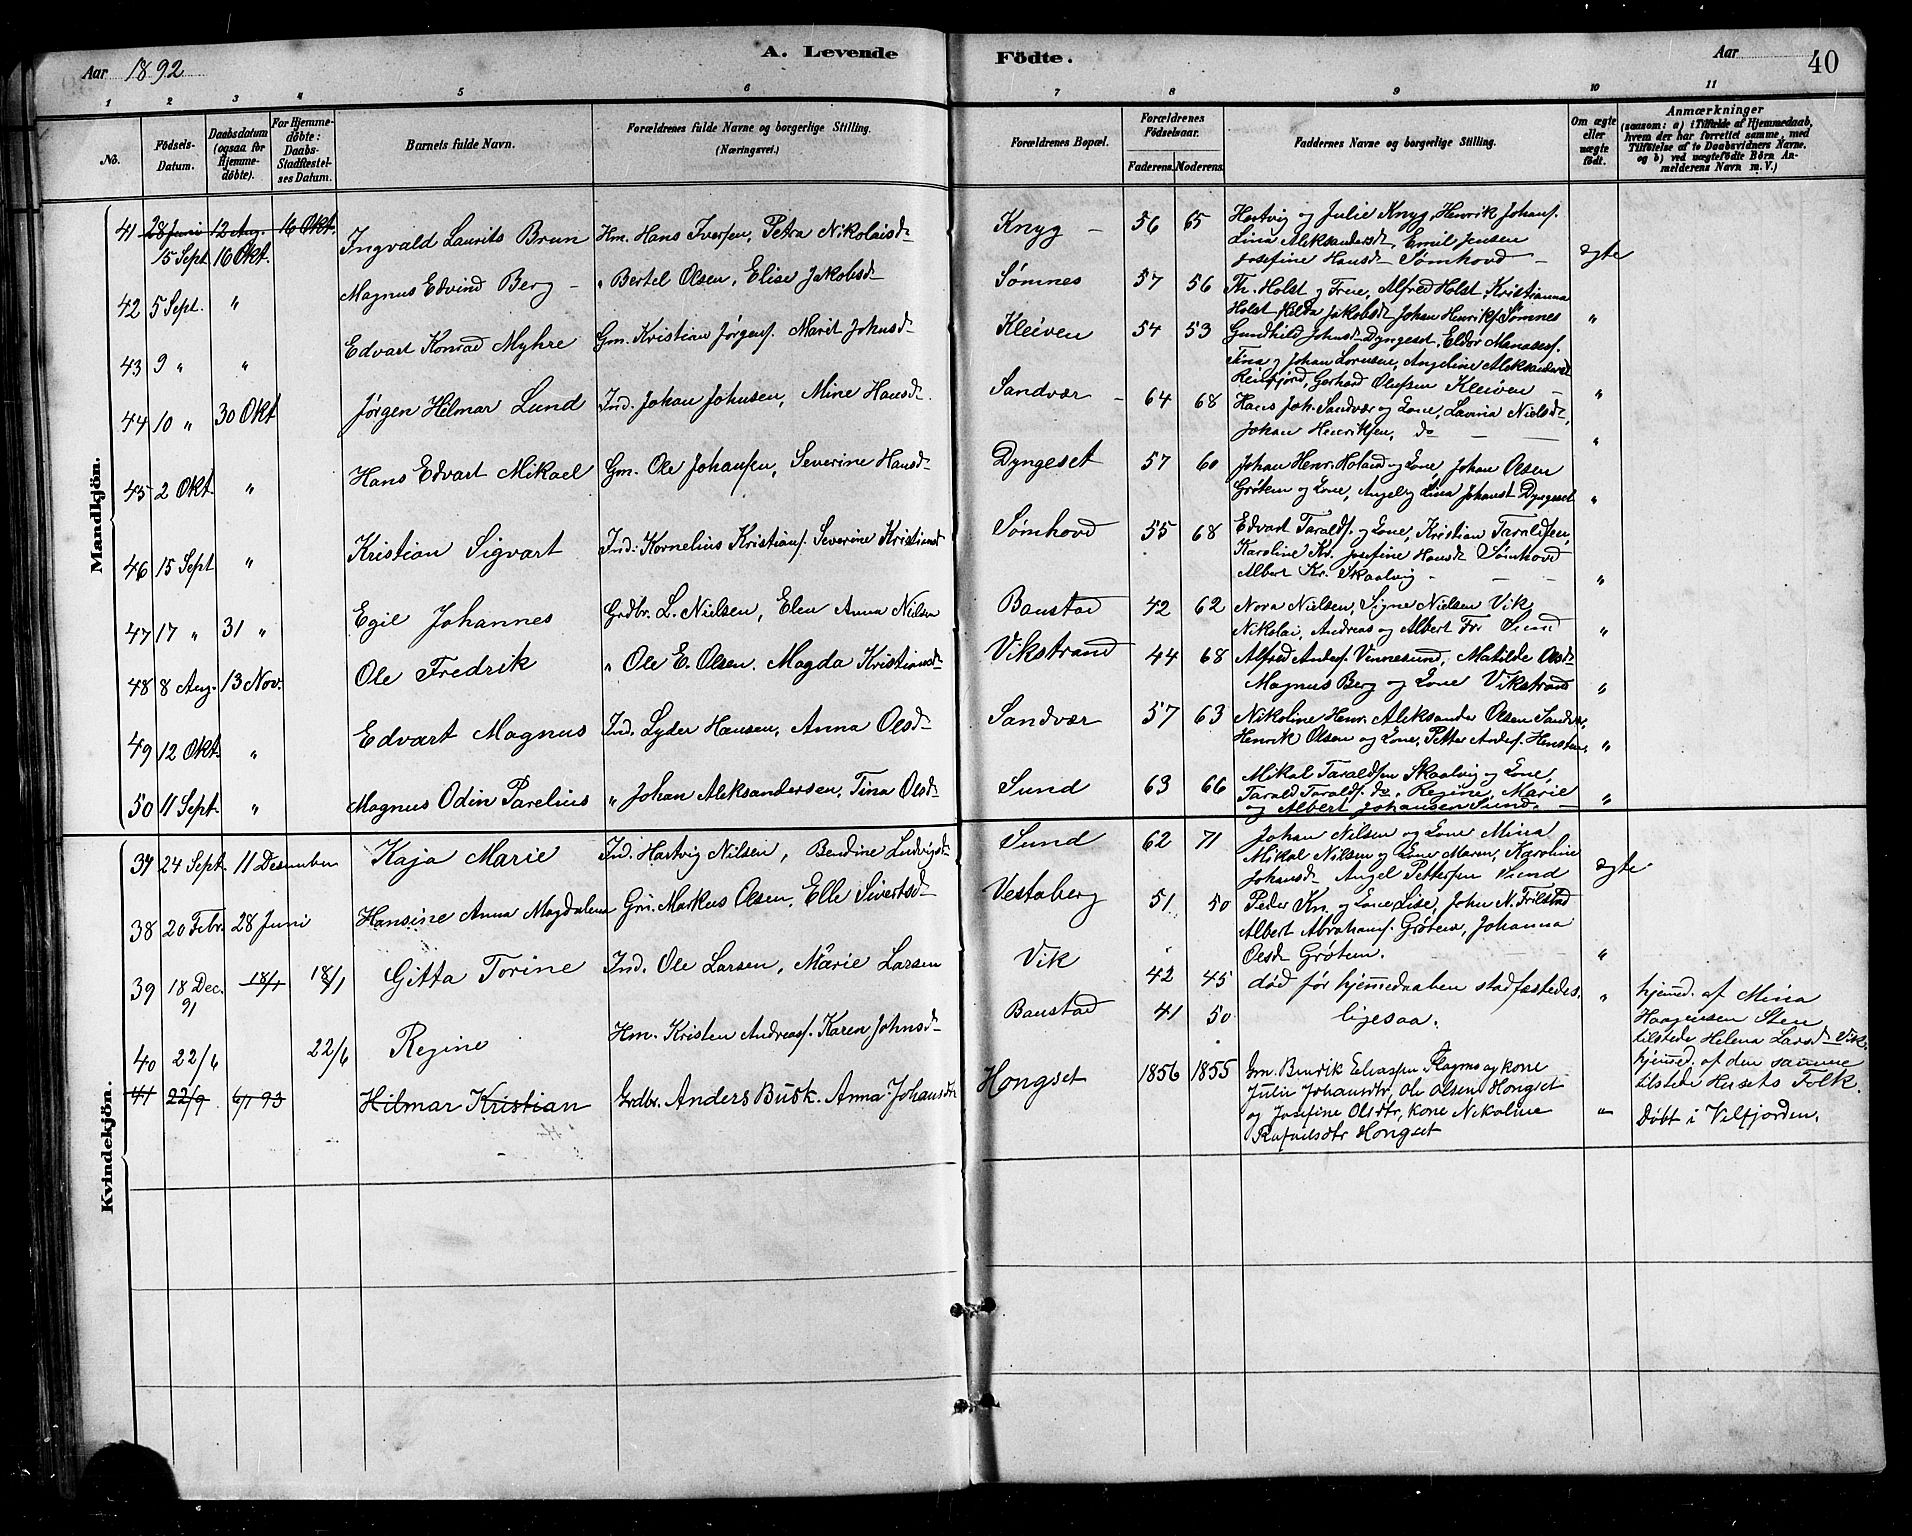 Aar 1892
A. Levende
Födte.
Aar
40
1 2 3 4 5 6 7 8 9 10 11
No.
Födsels-Datum.
Daabsdatum (ogsaa for Hjemme-döbte).
For Hjemme-döbte: Daabs-Stadfæstel-ses Datum.
Barnets fulde Navn.
Forældrenes fulde Navne og borgerlige Stilling. (Næringsvei.)
Forældrenes Bopæl.
Forældrenes Födselsaar.
Faderens. Moderens.
Faddernes Navne og borgerlige Stilling.
Om ægte eller uægte födt.
Anmærkninger
(saasom: a) i Tilfælde af Hjemmedaab, hvem der har forrettet samme, med Tilföielse af to Daabsvidners Navne, og b) ved uægtefödte Börn Anmelderens Navn m. V.)
Mandkjön.
41 28 Juni 12 Aug. 16 Okt.
15 Sept. 16 Okt. Ingvald Laurits Brun Hm. Hans Iversen, Petra Nikolaisd. Knyg 56 65 Hartvig og Julie Knyg, Henrik Johans.
Lina Aleksandersd. Emil Jensen
Josefine Hansd. Sømhovd ægte
42 5 Sept. " Magnus Edvind Berg " Bertel Olsen, Elise Jakobsd. Sømnes 57 56 Th. Holst og Frue, Alfred Holst, Kristianna
Holst, Hilda Jakobsd. Johan Henriks. Sømnes "
43 9 " " Edvart Konrad Myhre Gm. Kristian Jørgens. Marit Johnsd. Kleiven 54 53 Gundhild Johnsd. Dyngeset, Eldor Manases.
Tina og Johan Lornsen, Angeline Aleksandersd.
Reinfjord, Gerhard Olufsen Kleiven "
44 10 " 30 Okt Jørgen Helmar Lund Ind. Johan Johnsen, Mine Hansd. Sandvær 64 68 Hans Joh. Sandvær og Kone, Lavina Nielsd.
Johan Henriksen, do "
45 2 Okt " Hans Edvart Mikael Gm. Ole Johansen, Severine Hansd. Dyngeset 57 60 Johan Henr. Holand og Kone, Johan Olsen
Grøtem og Kone, Angel og Lina Johansd. Dyngeset "
46 15 Sept " Kristian Sigvart Ind. Kornelius Kristians. Severine Kristiansd. Sømhovd 55 68 Edvart Taralds. og Kone, Kristian Taraldsen,
Karoline Kr. Josefine Hansd. Sømhovd
Albert Kr. Skaalvig "
47 17 " 31 " Egil Johannes Grdbr. L. Nielsen, Elen Anna Nilsen Baustad 42 62 Nora Nielsen, Signe Nielsen Vik,
Nikolai, Andreas og Albert Fr. Sund "
48 8 Aug. 13 Nov. Ole Fredrik " Ole E. Olsen, Magda Kristiansd. Vikstrand 44 68 Alfred Anders. Vennesund, Matilde Olsd.
Magnus Berg og Kone Vikstrand "
49 12 Okt. " Edvart Magnus Ind. Lyder Hansen, Anna Olsd. Sandvær 57 63 Nikoline Henr. Aleksander Olsen Sandv.
Henrik Olsen og Kone, Petter Anders. "
50 11 Sept. " Magnus Odin Parelius " Johan Aleksandersen, Tina Olsd. Sund 63 66 Mikal Taraldsen Skaalvig og Kone,
Tarald Taralds. do, Regine, Marie
og Albert Johansen Sund. "
Kvindekjön.
37 24 Sept. 11 Desember Kaja Marie Ind. Hartvig Nilsen, Bendine Ludvigsd. Sund 62 71 Johan Nilsen og Kone Mina
Mikal Nilsen og Kone Maren, Karoline
Johansd. Angel Pettersen Sund ægte
38 20 Febr. 28 Juni Hansine Anna Magdalena Gm. Markus Olsen, Elle Sivertsd. Vestaberg 51 50 Peder Kn. og Kone Lise, John N. Frilstad
Albert Abrahams. Grøtem, Johanna
Olsd. Grøtem. "
39 18 Dec. 91 18/1 18/1 Gitta Torine Ind. Ole Larsen, Marie Larsen Vik 42 45 død før hjemmedaaben stadfæstedes. " hjemd. af Mina
Haagensen Sten
tilstede Helena Larsd. Vik.
40 22/6 22/6 Regine Hm. Kristen Andreass. Karen Johnsd. Baustad 41 50 ligesaa. hjemmd. af den samme
tilstede Husets Folk.
41 22/9 6/1 93 Hilmar Kristian Grdbr. Anders Busk. Anna Johansdtr Hongset 1856 1855 Gm. Benrik Eliassen og kone
Julie Johansdtr, Ole Olsen Hongset
og Josefine Olsdtr, kone Nikoline
Rafaelsdtr Hongset " Døbt i Velfjorden.